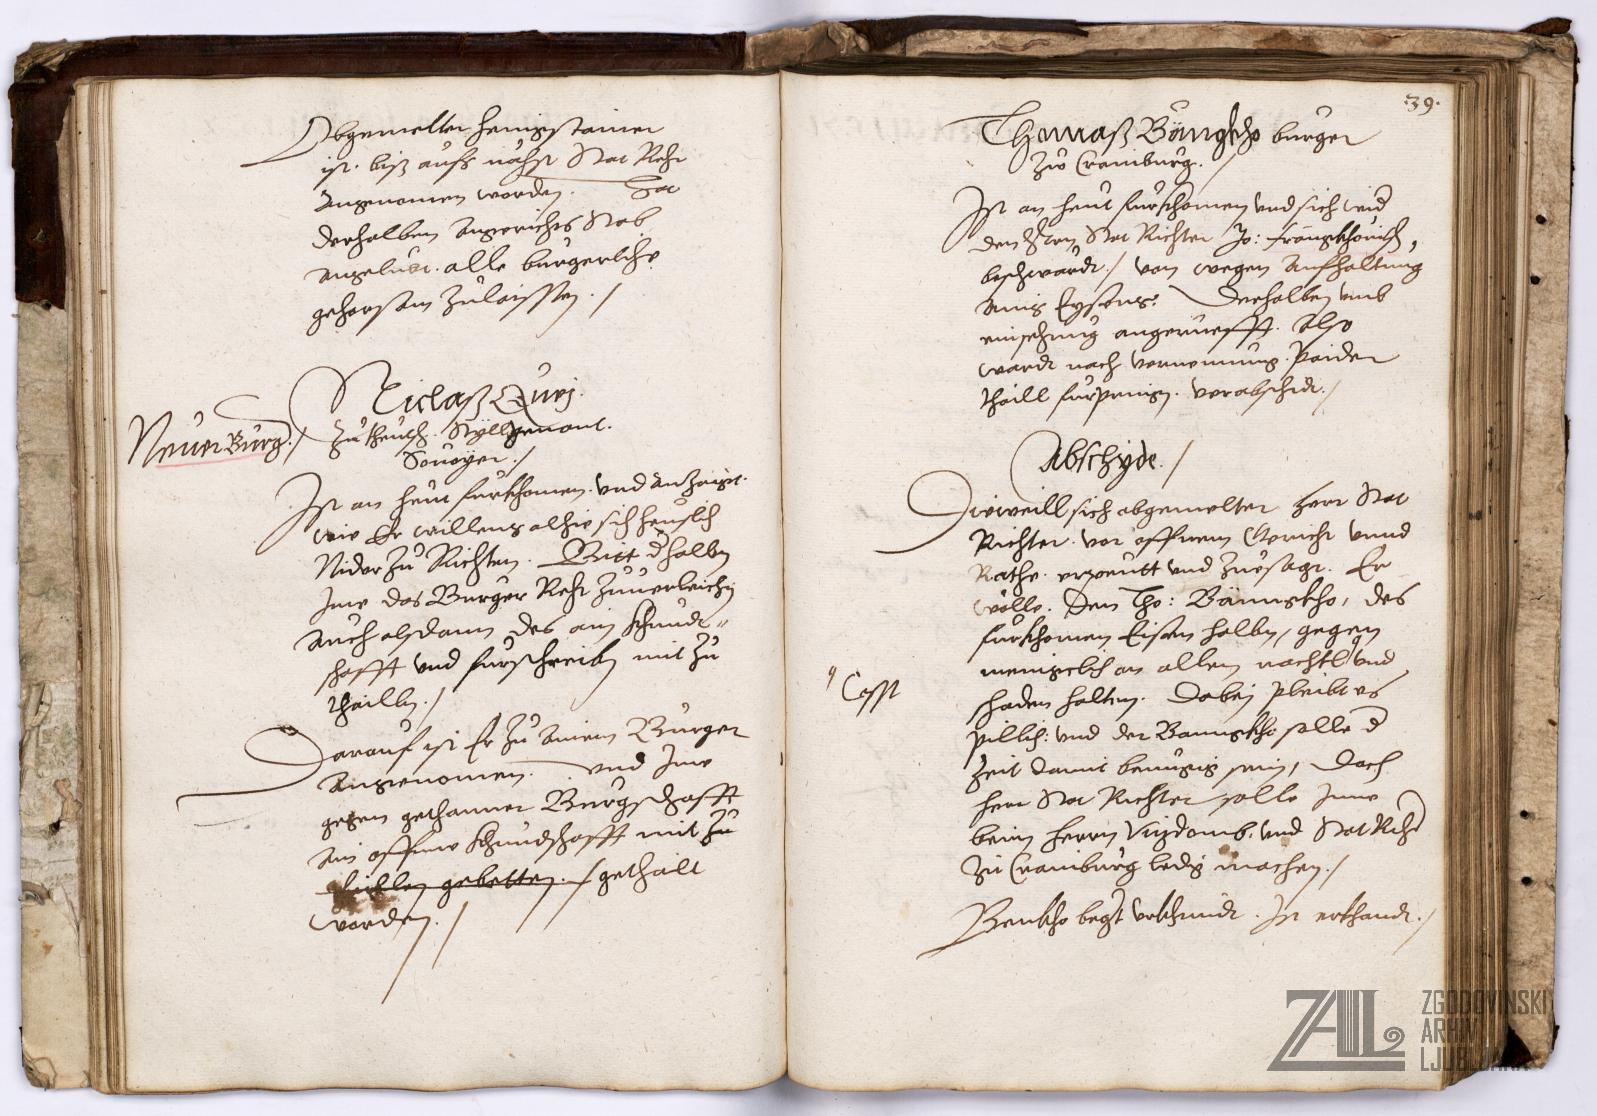 Obgemelter Hengstainer
ist. biß aufs nahst Stat Reht
Angenomen worden. Hat
derhalben Angerichts Stab
angelubt. alle burgerliche
gehorsam zulaisten./
Niclaß Quei.
Neuer Burg./ Zuteutsch. Styll genant.
Ist an heut furkhomen. und Anzaigt.
wie Er willens alhie sich heuslich
Nider Zu Richten. Bitt dhalben
Ime das Burger Reht Zuuerleichen
Auch alsdann des ain khundt-
schafft und furschreiben mit zu
thailln./
Darauf ist Er Zu Ainem Burger
Angenomen. und Ime
gegen gethanner Burgschafft
Ain offene khundschafft mit zu
gebetten. / gethailt
worden.//
.39.
Thomaß Bängkho burger
zu Crainburg./
Ist an heut furkhomen und sich wid
den Herrn Stat Richter Jo:
beschwardt./ von wegen Aufhaltung
Ains Eysens. Derhalben umb
einsehung angeruefft. Also
wardt nach vernemung. Paider
thaill furpringen. verabschidt./
Abschyde./
Dieweill sich abgemelter Herr Stat
Richter. vor offnem Gericht unnd
Rathe. erpeutt und Zuesagt. Er
wölle. Dem Tho: Bänngkho, des
furkhomen Eisen halben, gegen
menigclich an allen nachtl und
Cosst
schaden halten. Dabei Pleibt es
Pillich: und der Banngkho solle d
Zeit damit benuegig sein, Doch
herr Stat Richter solle Ime
beim Herrn Vizdomb. und Stat Richt
zu Crainburg ledig machen./
Benkho begt urkhundt. Ist erkhandt./
ZAL
ZGODOVINSKI
ARHIV
LJUBLJANA